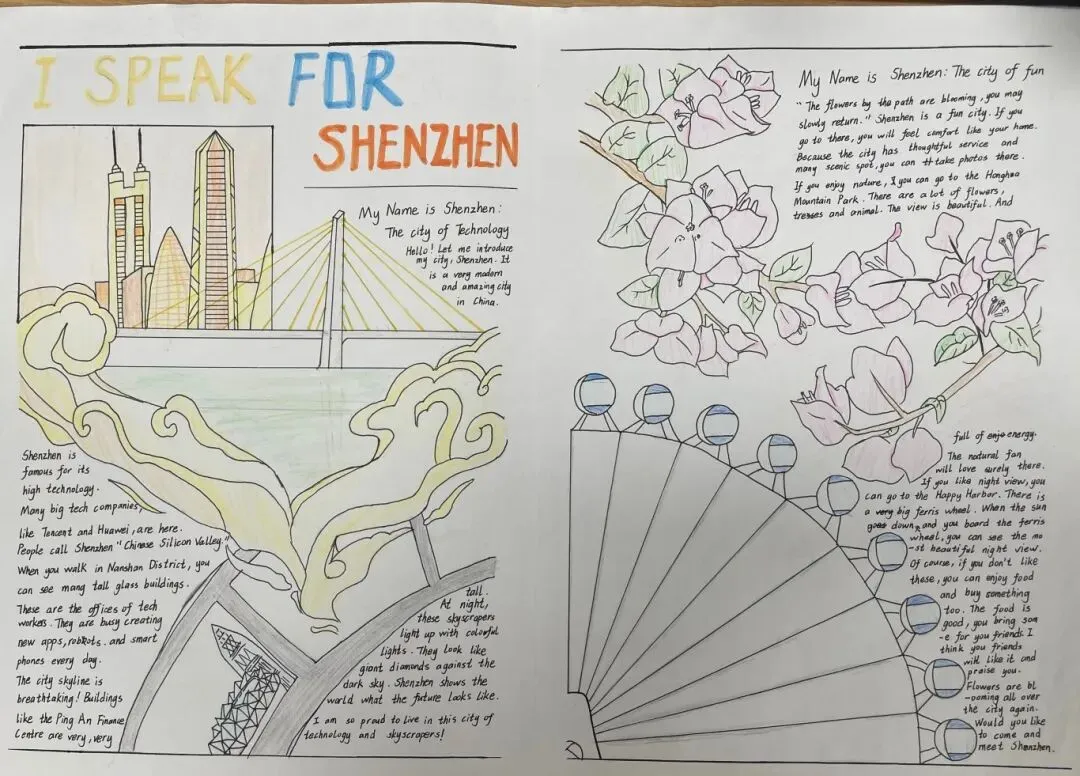 I SPEAK FOR
SHENZHEN
My Name is Shenzhen:
The city of Technology
Hello! Let me introduce
my city, Shenzhen. It
is a very modern
and amazing city
in China.
Shenzhen is
famous for its
high technology.
Many big tech companies,
like Tencent and Huawei, are here.
People call Shenzhen "Chinese Silicon Valley."
When you walk in Nanshan District, you
can see mang tall glass buildings.
These are the offices of tech
workers. They are busy creating
new apps, robots. and smart
phones every day.
The city skyline is
breathtaking! Buildings
like the Ping An Finance
Centre are very, very
tall.
At night,
these skyscrapers
light up with colorful
lights. They look like
giant diamonds against the
dark sky. Shenzhen shows the
world what the future looks like.
I am so proud to live in this city of
technology and skyscrapers!
My Name is Shenzhen: The city of fun
"The flowers by the path are blooming, you may
slowly return." Shenzhen is a fun city. If you
go to there, you will feel comfort like your home.
Because the city has thoughtful service and
many scenic spot, you can take photos there.
If you enjoy nature, you can go to the Honghua
Mountain Park. There are a lot of flowers,
treeses and animal. The view is beautiful. And
full of energy.
The natural fan
will love surely there.
If you like night view, you
can go to the Happy Harbor. There is
a very big ferris wheel. When the sun
goes down, and you board the ferris
wheel, you can see the mo
-st beautiful night view.
Of course, if you don't like
these, you can enjoy food
and buy something
too. The food is
good, you bring som
-e for you friends. I
think you friends
will like it and
praise you.
Flowers are bl
-ooming all over
the city again.
Would you like
to come and
meet Shenzhen.